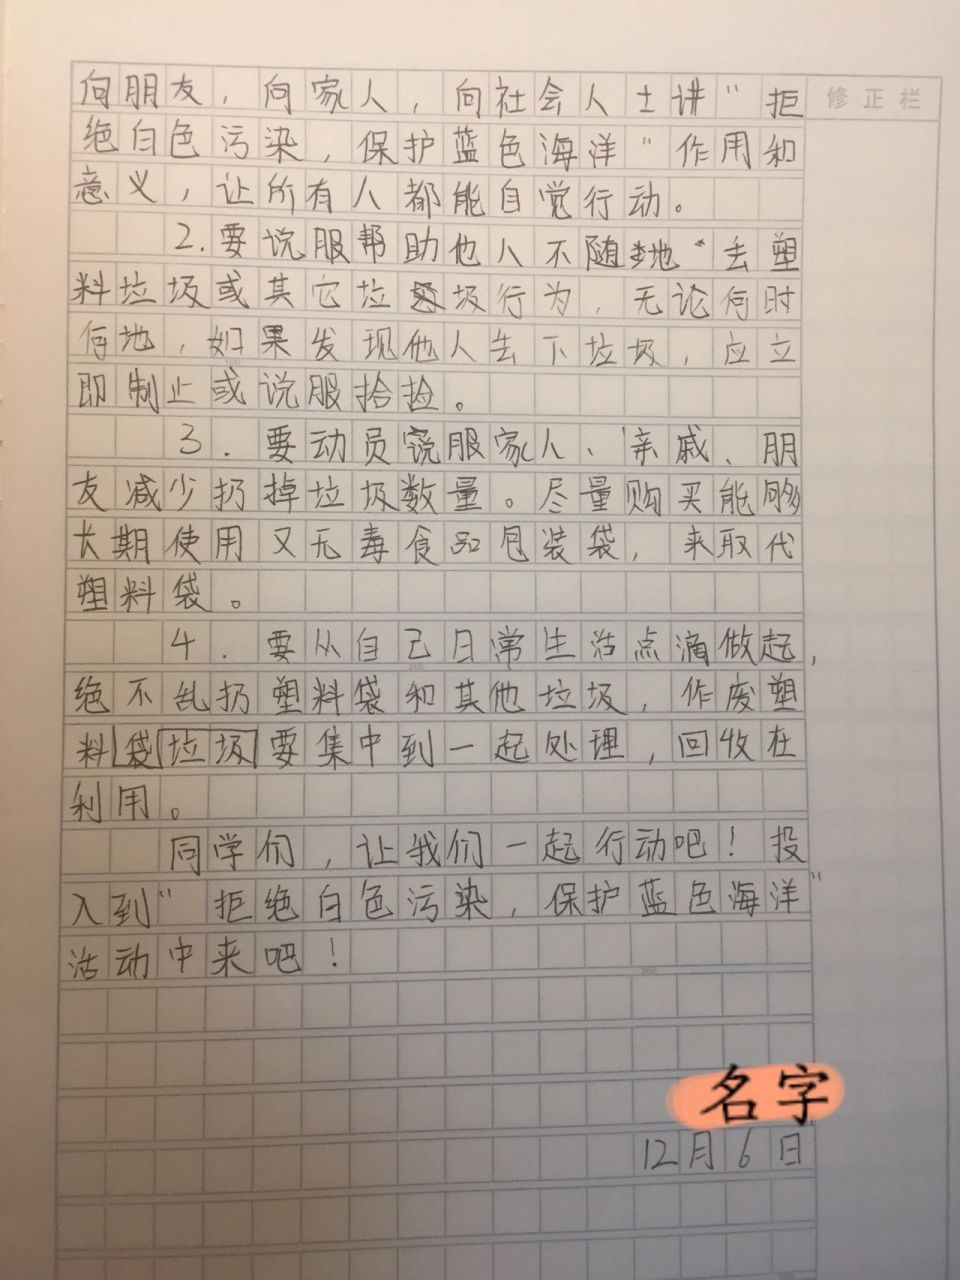 向朋友，向家人，向社会人士讲“拒
修正栏
绝白色污染，保护蓝色海洋”作用和
意义，让所有人都能自觉行动。
2.要说服帮助他人不随地“去塑
料垃圾或其它垃圾行为，无论何时
何地，如果发现他人去下垃圾，应立
即制止或说服拾捡。
3.要动员说服家人、亲戚、朋
友减少扔掉垃圾数量。尽量购买能够
长期使用又无毒食品包装袋，来取代
塑料袋。
4.要从自己日常生活点滴做起，
绝不乱扔塑料袋和其他垃圾，作废塑
料袋垃圾要集中到一起处理，回收在
利用。
同学们，让我们一起行动吧！投
入到“拒绝白色污染，保护蓝色海洋”
活动中来吧！
名字
12月6日